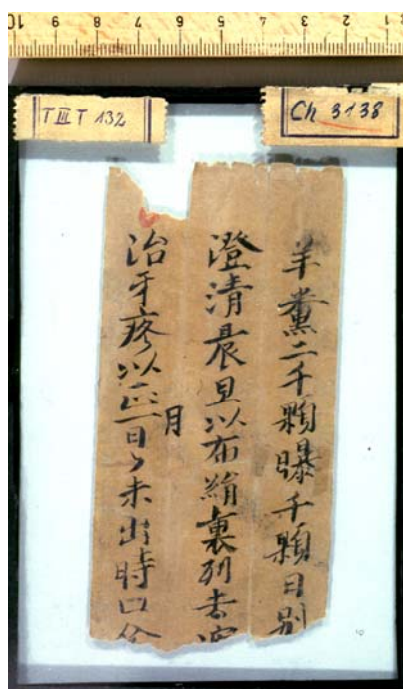 10 9 8 7 6 5 4 3 2 1
T III T 132
Ch 3138
羊糞二千顆曝千顆日別
澄清晨旦以布絹裹列去
治牙疼以正月一日々未出時口